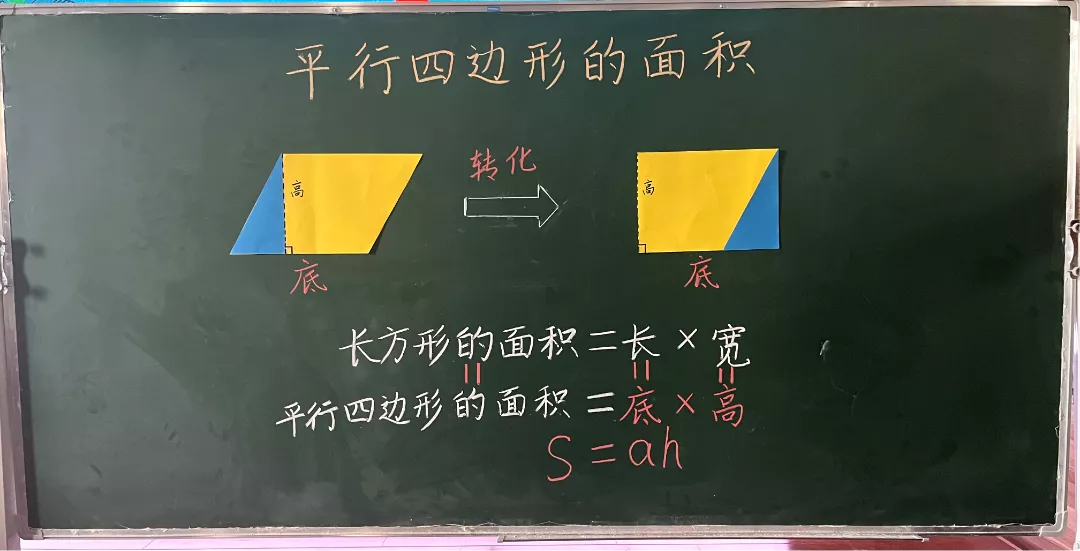 平行四边形的面积
高 转化 高
底 底
长方形的面积=长×宽
= = =
平行四边形的面积=底×高
S=ah